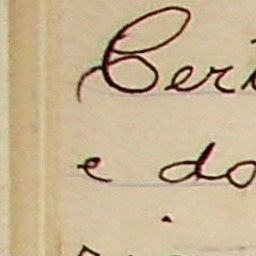 Cer
e do